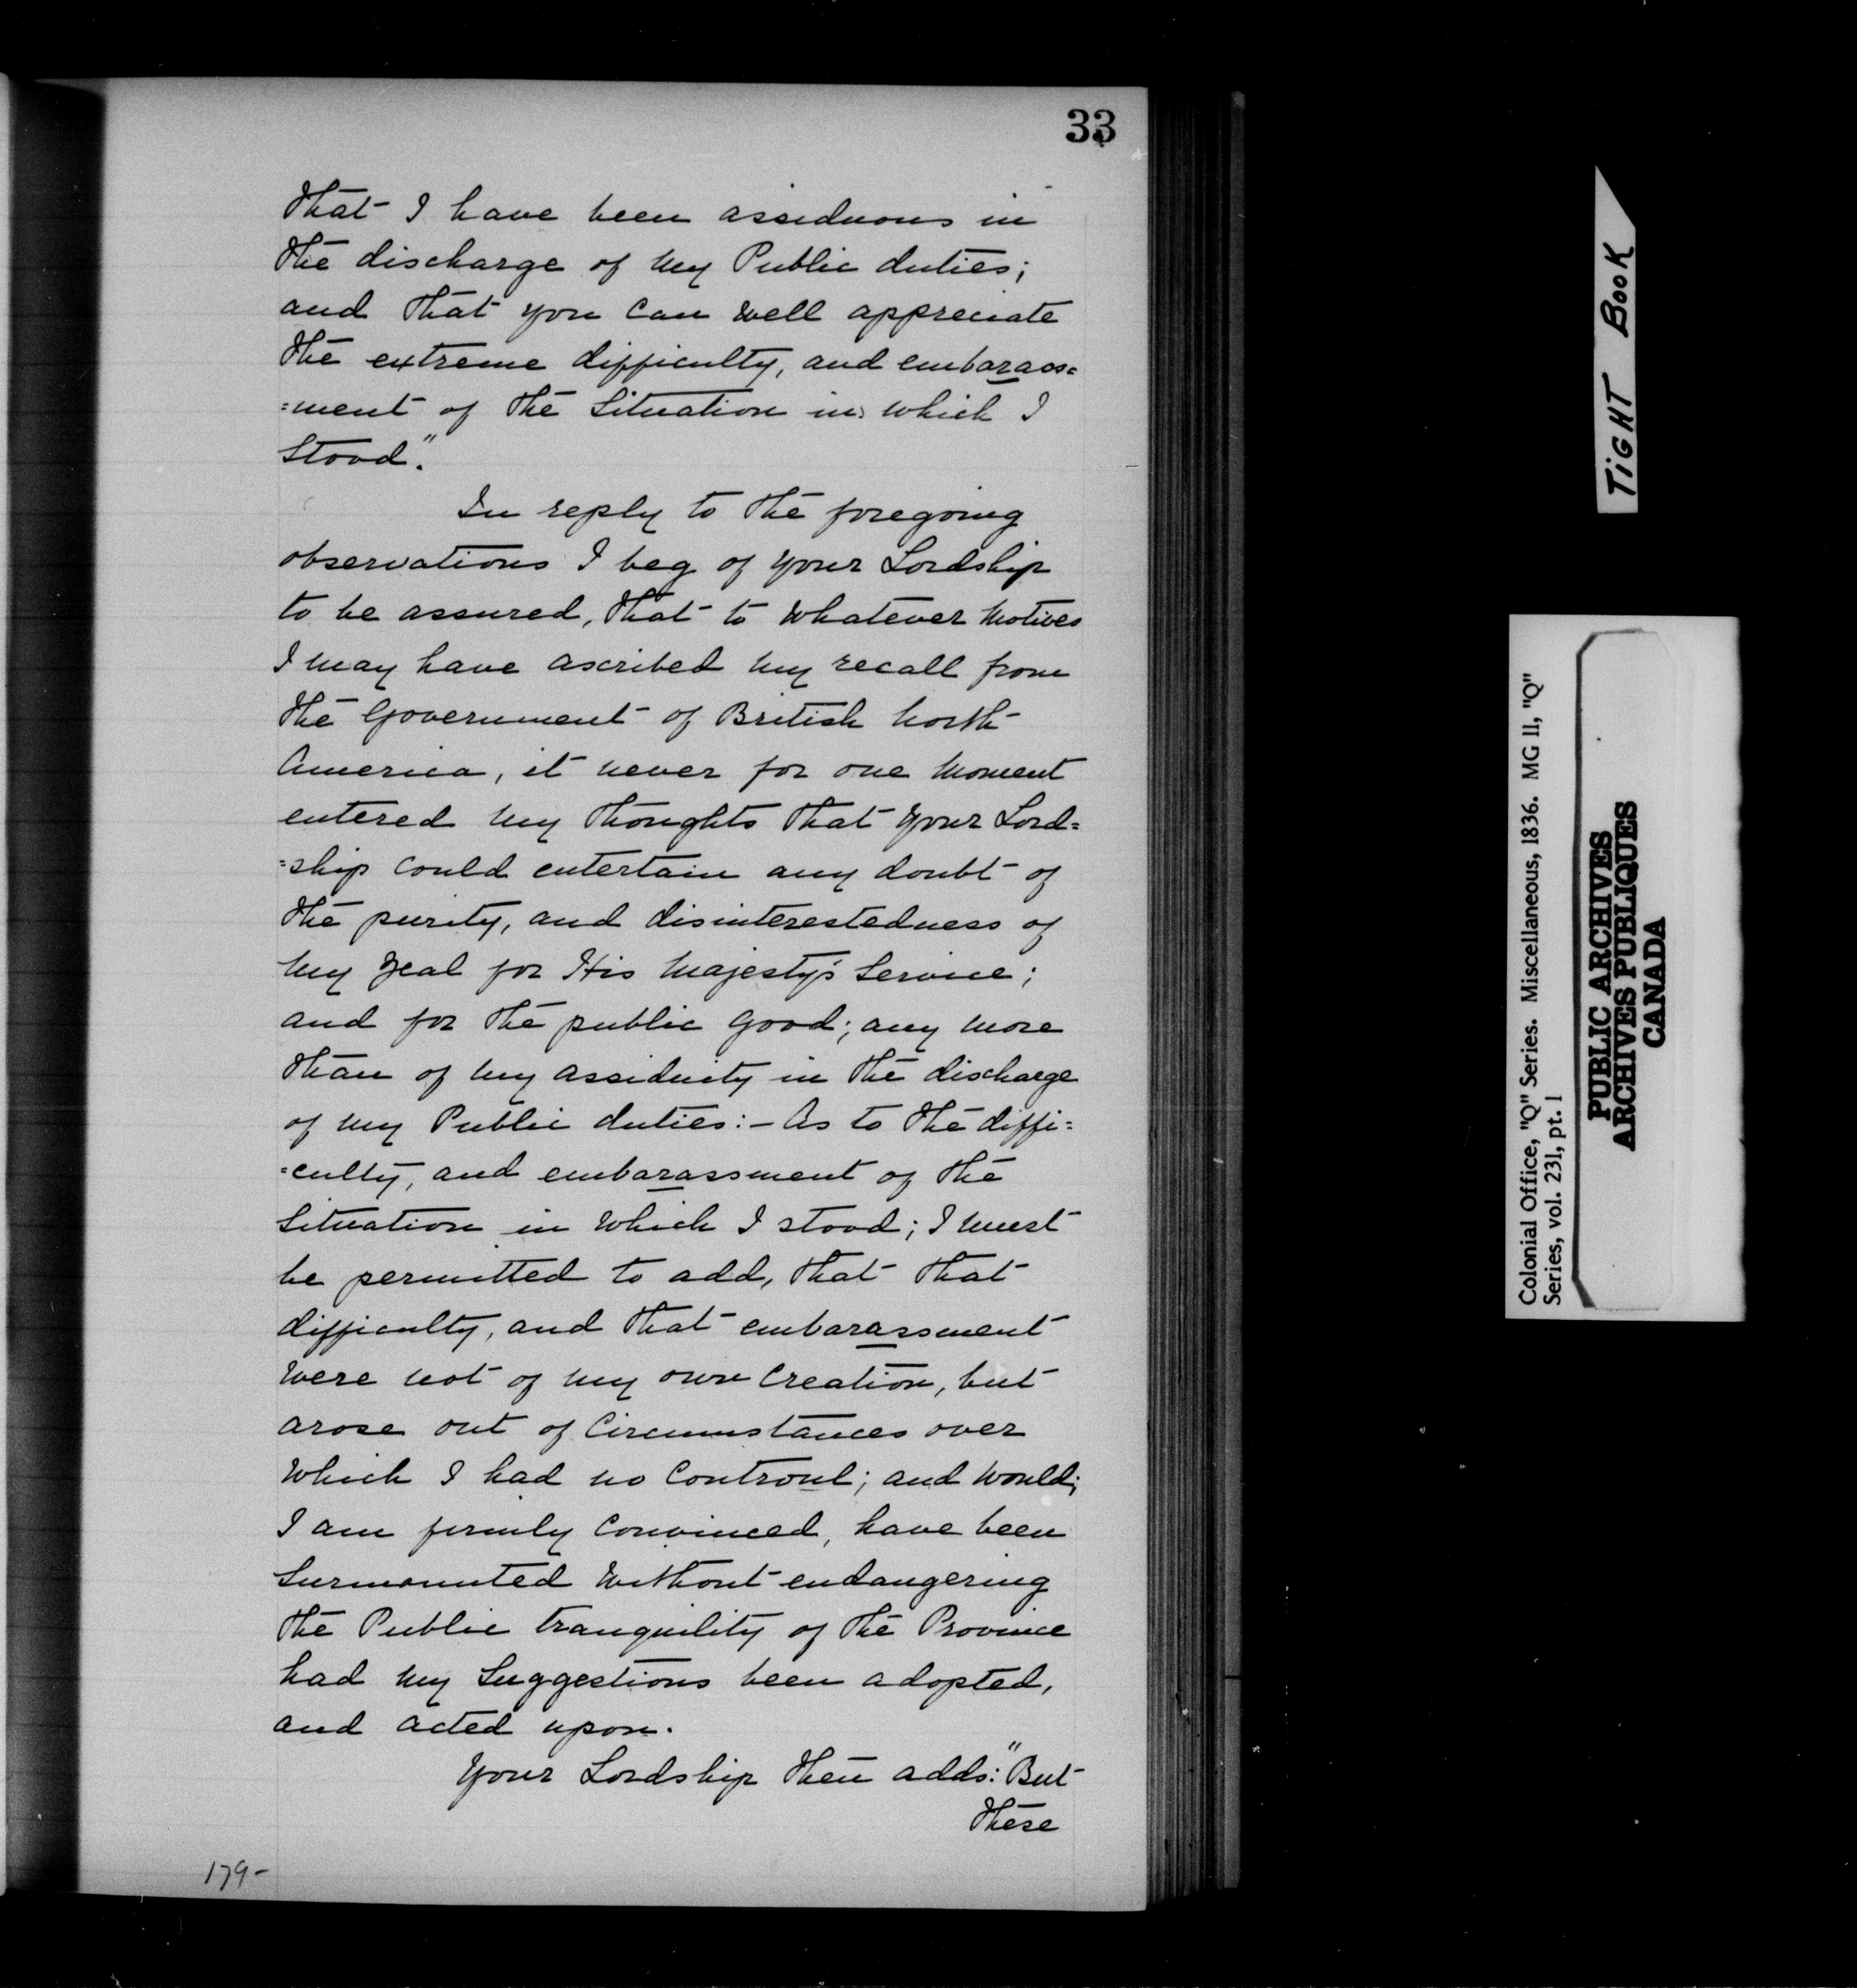 33
that I have been assiduous in
the discharge of my Public duties;
and that you can well appreciate
the extreme difficulty, and embarass=
=ment of the Situation in which I
Stood."
In reply to the foregoing
observations I beg of your Lordship
to be assured, that to whatever Motives
I may have ascribed my recall from
the Government of British North
America, it never for one Moment
entered my thoughts that your Lord=
=ship could entertain any doubt of
the purity, and disinterestedness of
my Zeal for His Majesty's Service;
and for the public Good; any more
than of my assiduity in the discharge
of my Public duties:- As to the diffi=
=culty, and embarassment of the
Situation in which I stood; I must
be permitted to add, that that
difficulty, and that embarassment
were not of my own Creation, but
arose out of Circumstances over
which I had no Controul; and would;
I am firmly Convinced, have been
Surmounted without endangering
the Public tranquility of the Province
had my Suggestions been adopted,
and acted upon.
Your Lordship then adds: "But
these
179-
TIGHT BOOK
Colonial Office, "Q" Series. Miscellaneous, 1836. MG 11, "Q"
Series, vol. 231, pt. 1
PUBLIC ARCHIVES
ARCHIVES PUBLIQUES
CANADA